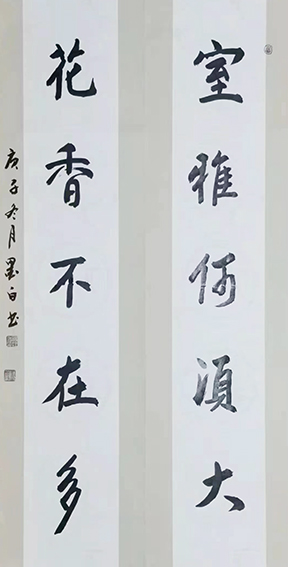 室雅何须大
花香不在多
庚子冬月墨白书